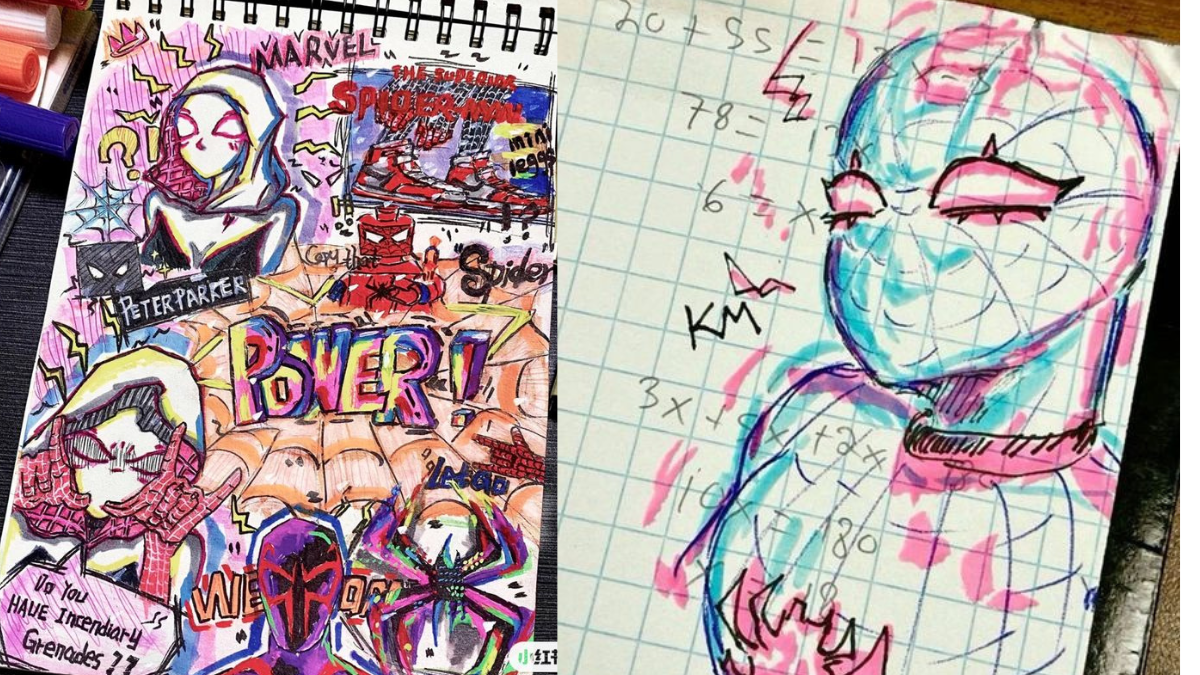 MARVEL
THE SUPERIOR
SPIDER-MAN
mini
legos
?!
Copy that
Spider
PETER PARKER
POWER!
Let's Go
WE
Do You
HAVE Incendiary
Grenades??
小红书
20 + 55 =
78 =
6 = x
KM
3x +
+ 2x
10x = 180
18